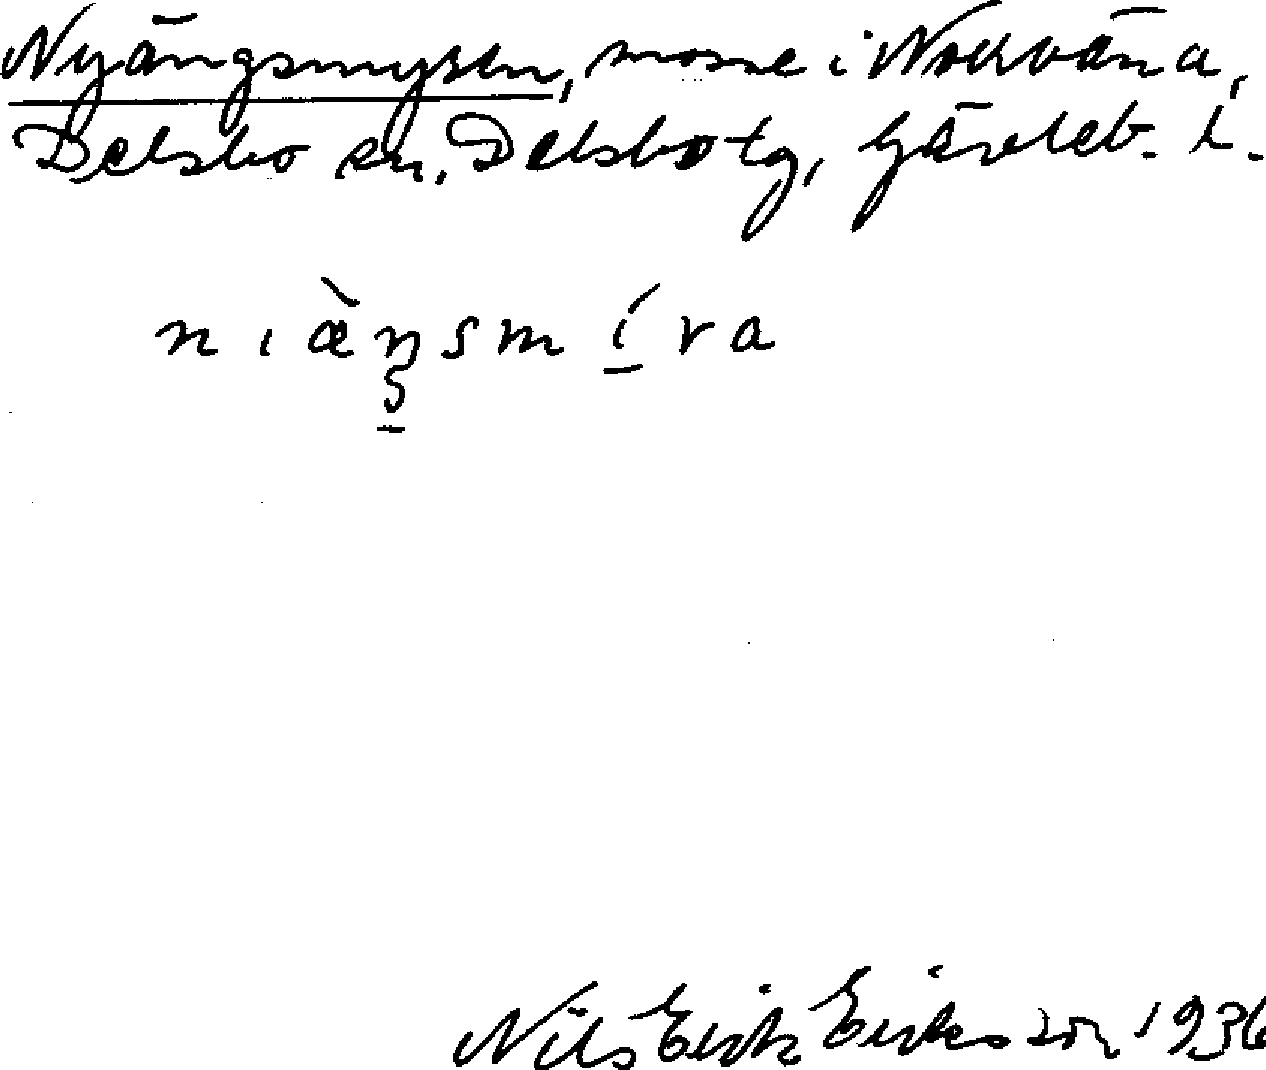 Nyängsmyren, mosse i Norrväna,
Delsbo sn, Delsbo tg, Gävleb. l.
nıæ̀ŋsmíra
Nils Erik Eriksson 1936